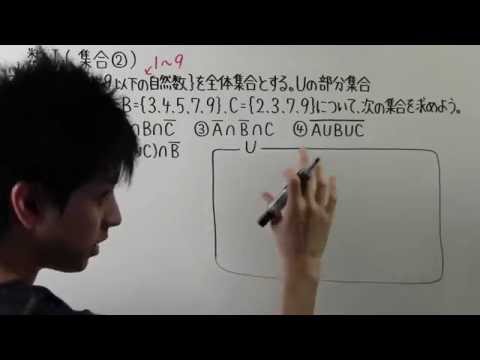 数I(集合②)
1～9
9以下の自然数}を全体集合とする。Uの部分集合
B={3.4.5.7.9}.C={2.3.7.9}について、次の集合を求めよう。
∩B∩C̅ ③ A̅∩B̅∩C ④ A̅∪̅B̅∪̅C̅
∪C)∩B̅
U